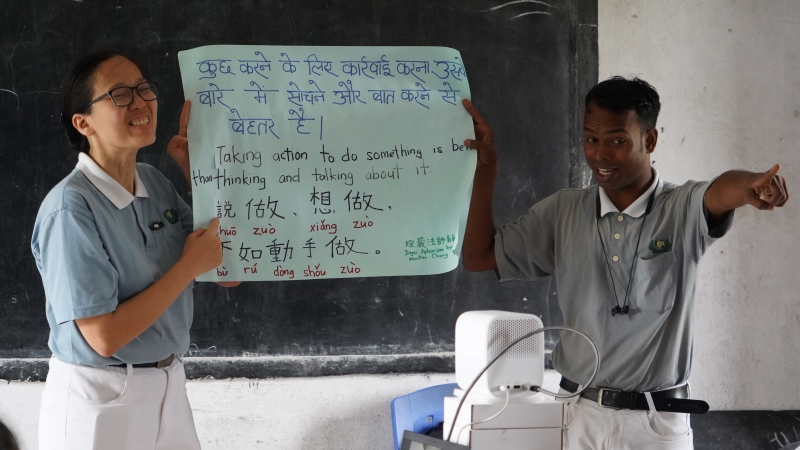 कुछ करने के लिए कार्रवाई करना उसके
बारे में सोचने और बात करने से
बेहतर है।
Taking action to do something is
than thinking and talking about it.
說做、想做、
huō zuò xiǎng zuò
不如動手做。
bù rú dòng shǒu zuò
證嚴法師
Jingsi Aphorisms by
Master Cheng